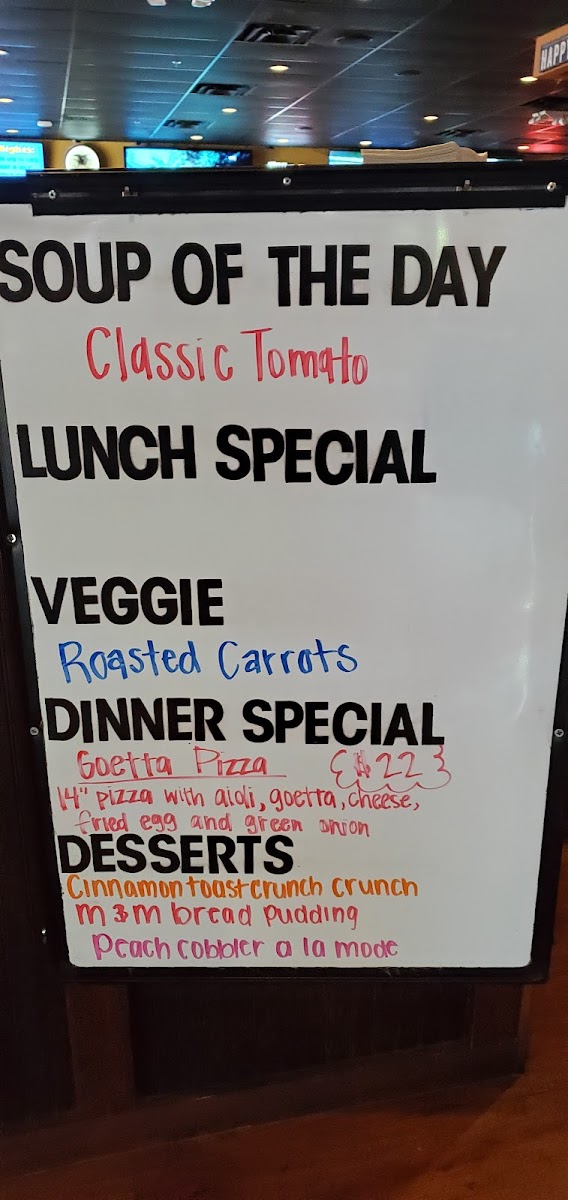 HAPPY
SOUP OF THE DAY
Classic Tomato
LUNCH SPECIAL
VEGGIE
Roasted Carrots
DINNER SPECIAL
Goetta Pizza $22
14" pizza with aioli, goetta, cheese,
fried egg and green onion
DESSERTS
Cinnamon toast crunch crunch
m & m bread pudding
Peach cobbler a la mode